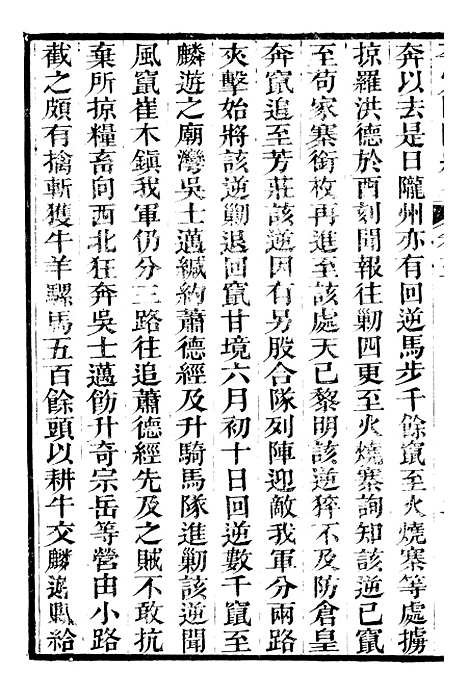 奔以去是日隴州亦有回逆馬步千餘竄至火燒寨等處擄
掠羅洪德於酉刻聞報往剿四更至火燒寨詢知該逆已竄
至苟家寨銜枚再進至該處天已黎明該逆猝不及防倉皇
奔竄追至芳莊該逆因有另股合隊列陣迎敵我軍分兩路
夾擊始將該逆剿退回竄甘境六月初十日回逆數千竄至
麟遊之廟灣吳士邁緘約蕭德經及升騎馬隊進剿該逆聞
風竄崔木鎮我軍仍分三路往追蕭德經先及之賊不敢抗
棄所掠糧畜向西北狂奔吳士邁飭升奇宗岳等營由小路
截之頗有擒斬獲牛羊騾馬五百餘頭以耕牛交麟遊縣給